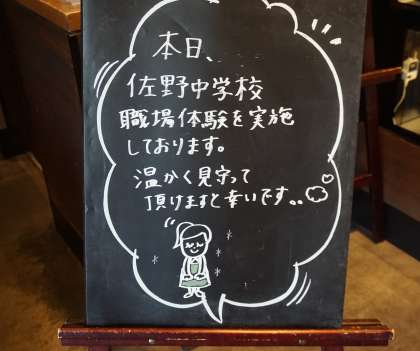 本日、
佐野中学校
職場体験を実施
しております。
温かく見守って
頂けますと幸いです。。